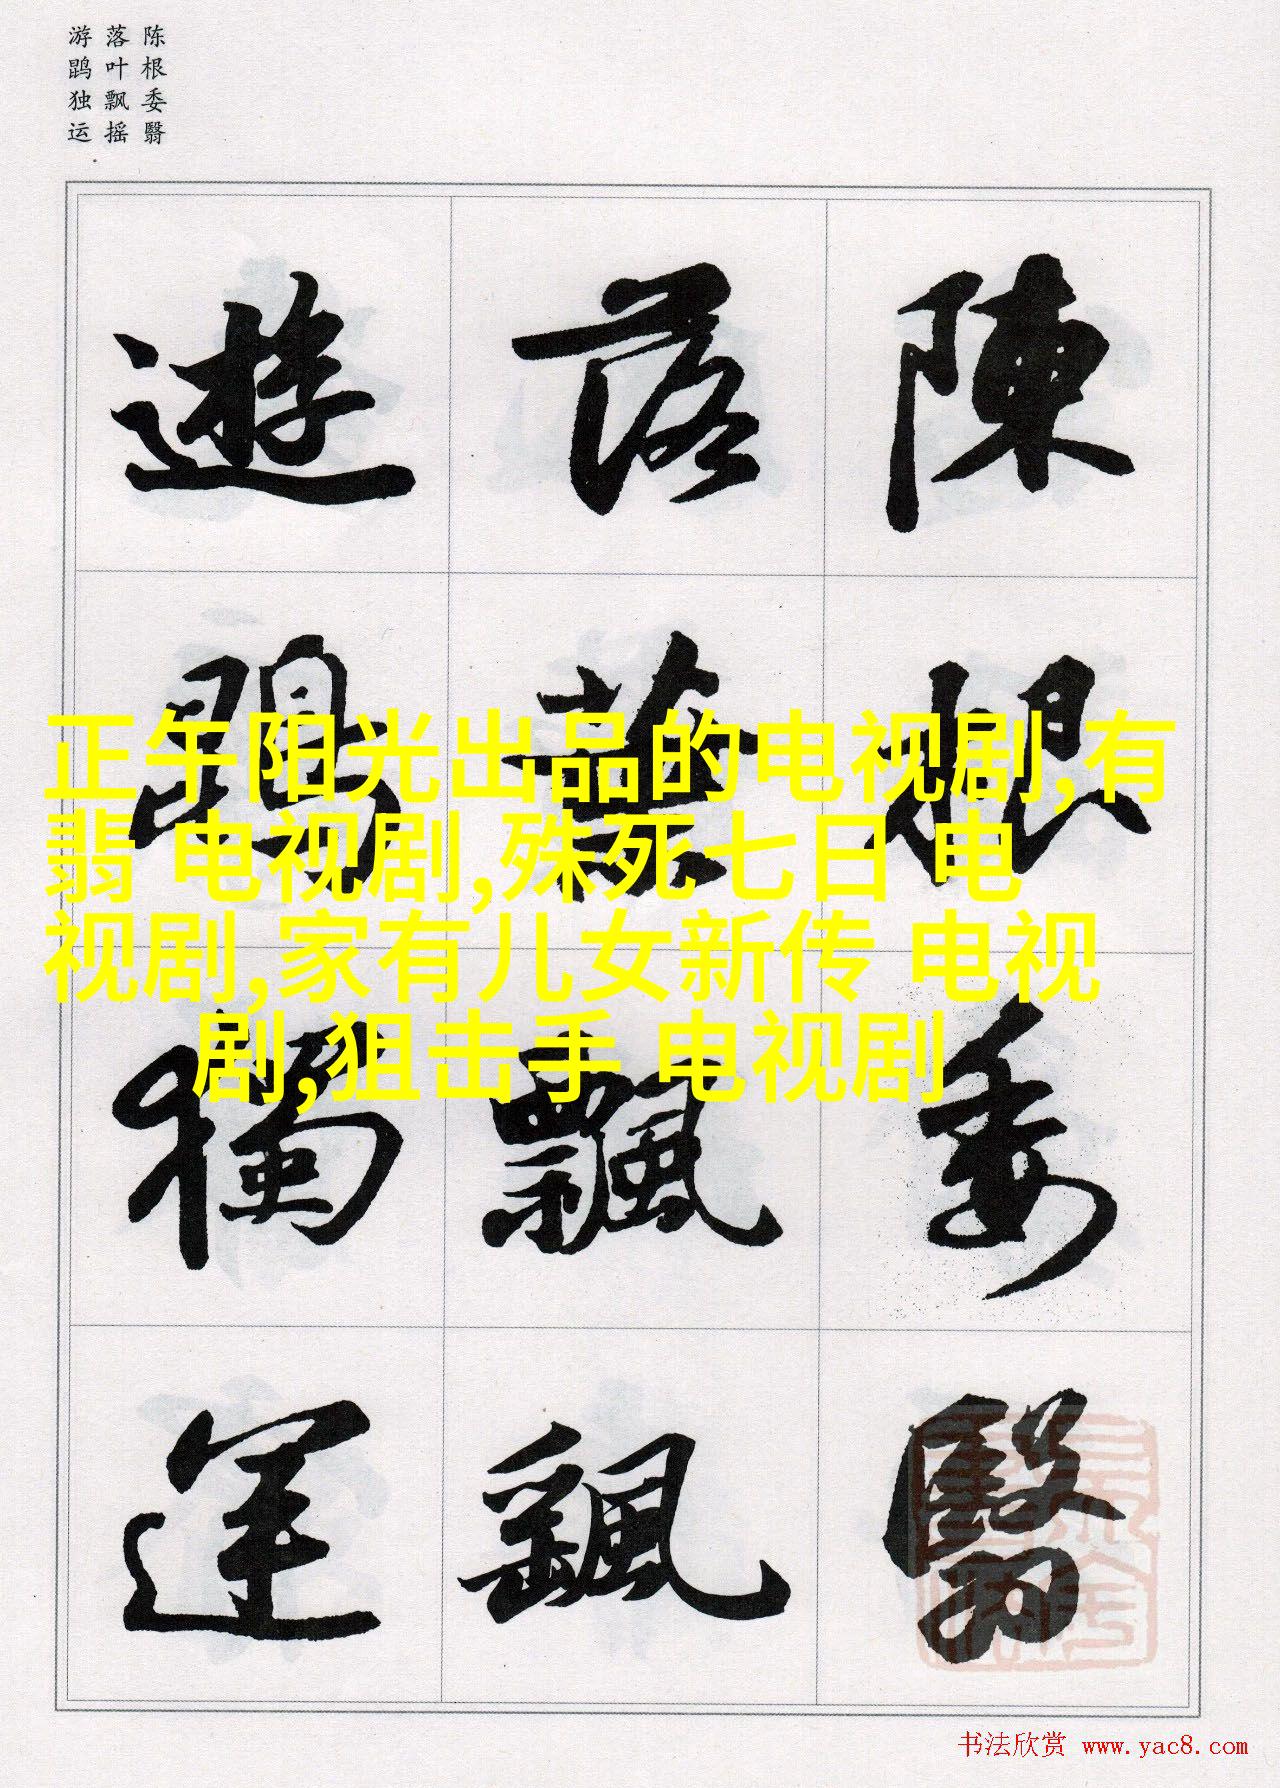 陈根委翳
落叶飘摇
游鹍独运
陳根委翳
落葉飄颻
遊鵾獨運
正午阳光出品的电视剧,有
翡 电视剧,殊死七日 电
视剧,家有儿女新传 电视
剧,狙击手 电视剧
书法欣赏 www.yac8.com